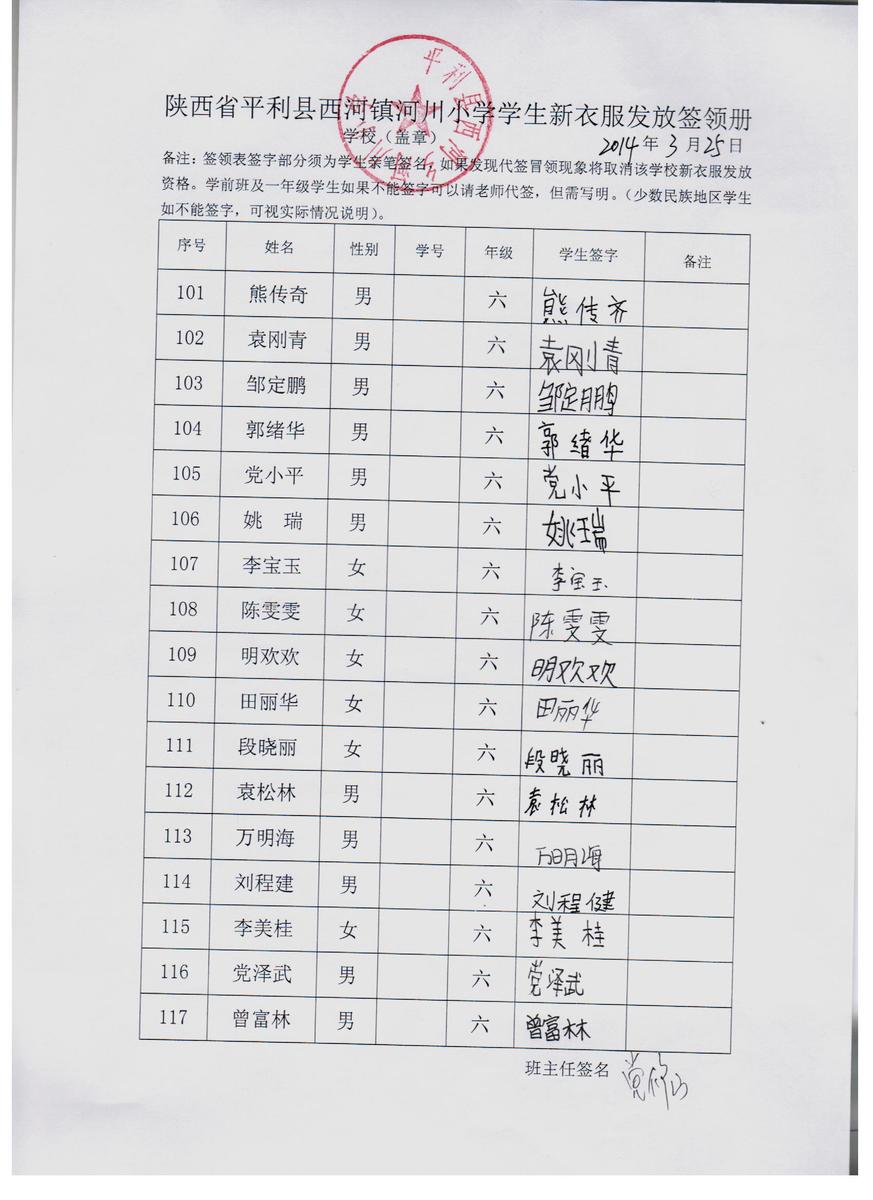 陕西省平利县西河镇河川小学学生新衣服发放签领册
学校（盖章） 2014年3月25日
备注：签领表签字部分须为学生亲笔签名，如果发现代签冒领现象将取消该学校新衣服发放
资格。学前班及一年级学生如果不能签字可以请老师代签，但需写明。（少数民族地区学生
如不能签字，可视实际情况说明）。
序号 姓名 性别 学号 年级 学生签字 备注
101 熊传奇 男 六 熊传齐
102 袁刚青 男 六 袁刚青
103 邹定鹏 男 六 邹定鹏
104 郭绪华 男 六 郭绪华
105 党小平 男 六 党小平
106 姚 瑞 男 六 姚瑞
107 李宝玉 女 六 李宝玉
108 陈雯雯 女 六 陈雯雯
109 明欢欢 女 六 明欢欢
110 田丽华 女 六 田丽华
111 段晓丽 女 六 段晓丽
112 袁松林 男 六 袁松林
113 万明海 男 六 万明海
114 刘程建 男 六 刘程健
115 李美桂 女 六 李美桂
116 党泽武 男 六 党泽武
117 曾富林 男 六 曾富林
班主任签名